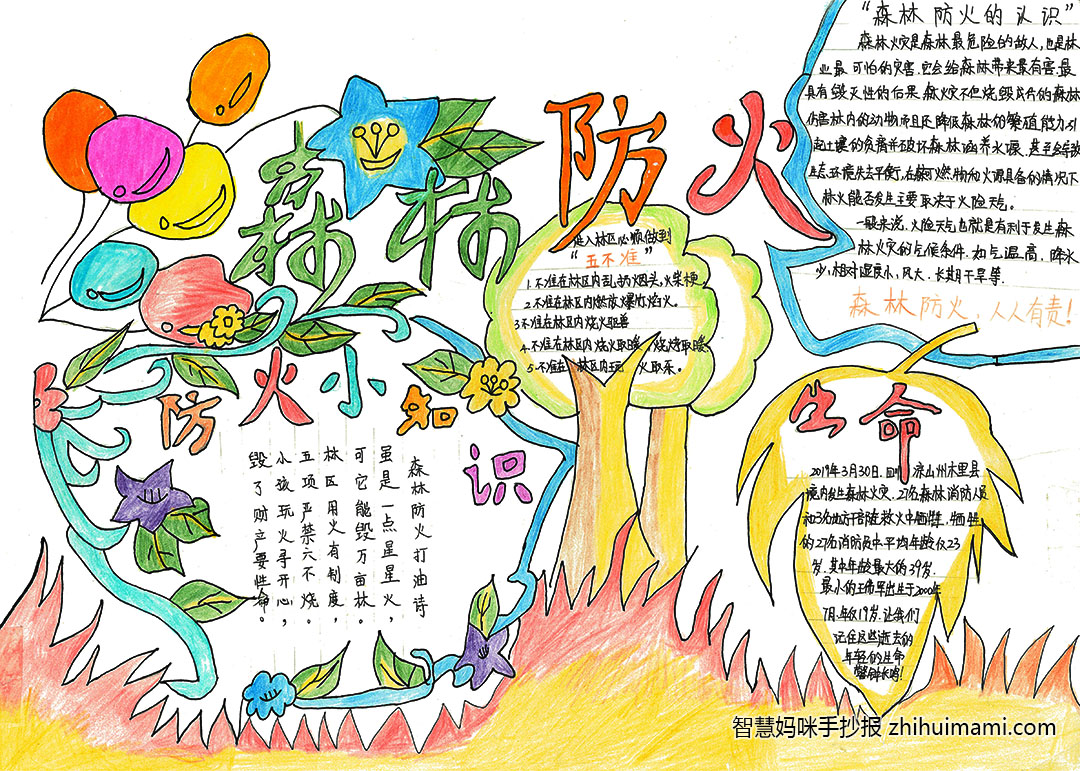 森林防火
"森林防火的认识"
森林火灾是森林最危险的敌人,也是林
业最可怕的灾害.它会给森林带来最有害.最
具有毁灭性的后果.森火灾不但烧毁片片的森林
伤害林内的动物而且还降低森林的繁殖能力.引
起土壤的贫瘠并破坏森林涵养水源.甚至会导致
生态环境失去平衡.在森可燃物和火源具备的情况下
林火能否发生主要取决于火险天气.
一般来说,火险天气也就是有利于发生森
林火灾的气候条件.如气温高,降水
少,相对湿度小,风大、长期干旱等.
森林防火,人人有责!
进入林区必须做到
"五不准"
1.不准在林区内乱扔烟头,火柴梗
2.不准在林区内燃放爆竹焰火。
3不准在林区内烧火驱兽
4.不准在林区内烧火取暖 烧烤取暖
5.不准在林区内玩 火取乐。
防火小知识
森林防火打油诗
虽是一点星星火,
可它能毁万亩林。
林区用火有制度,
五项严禁六不烧。
小孩玩火寻开心,
毁了财产要性命。
生命
2019年3月30日.四川 凉山州木里县
境内发生森林火灾.27名森林消防人员
和3名地方干部在救火中牺牲.牺牲
的27名消防员中平均年龄仅23
岁.其中年龄最大的39岁.
最小的王佛军出生于2000年
7月.年仅19岁.让我们
记住这些逝去的
年轻的生命
警钟长鸣!
智慧妈咪手抄报 zhihuimami.com